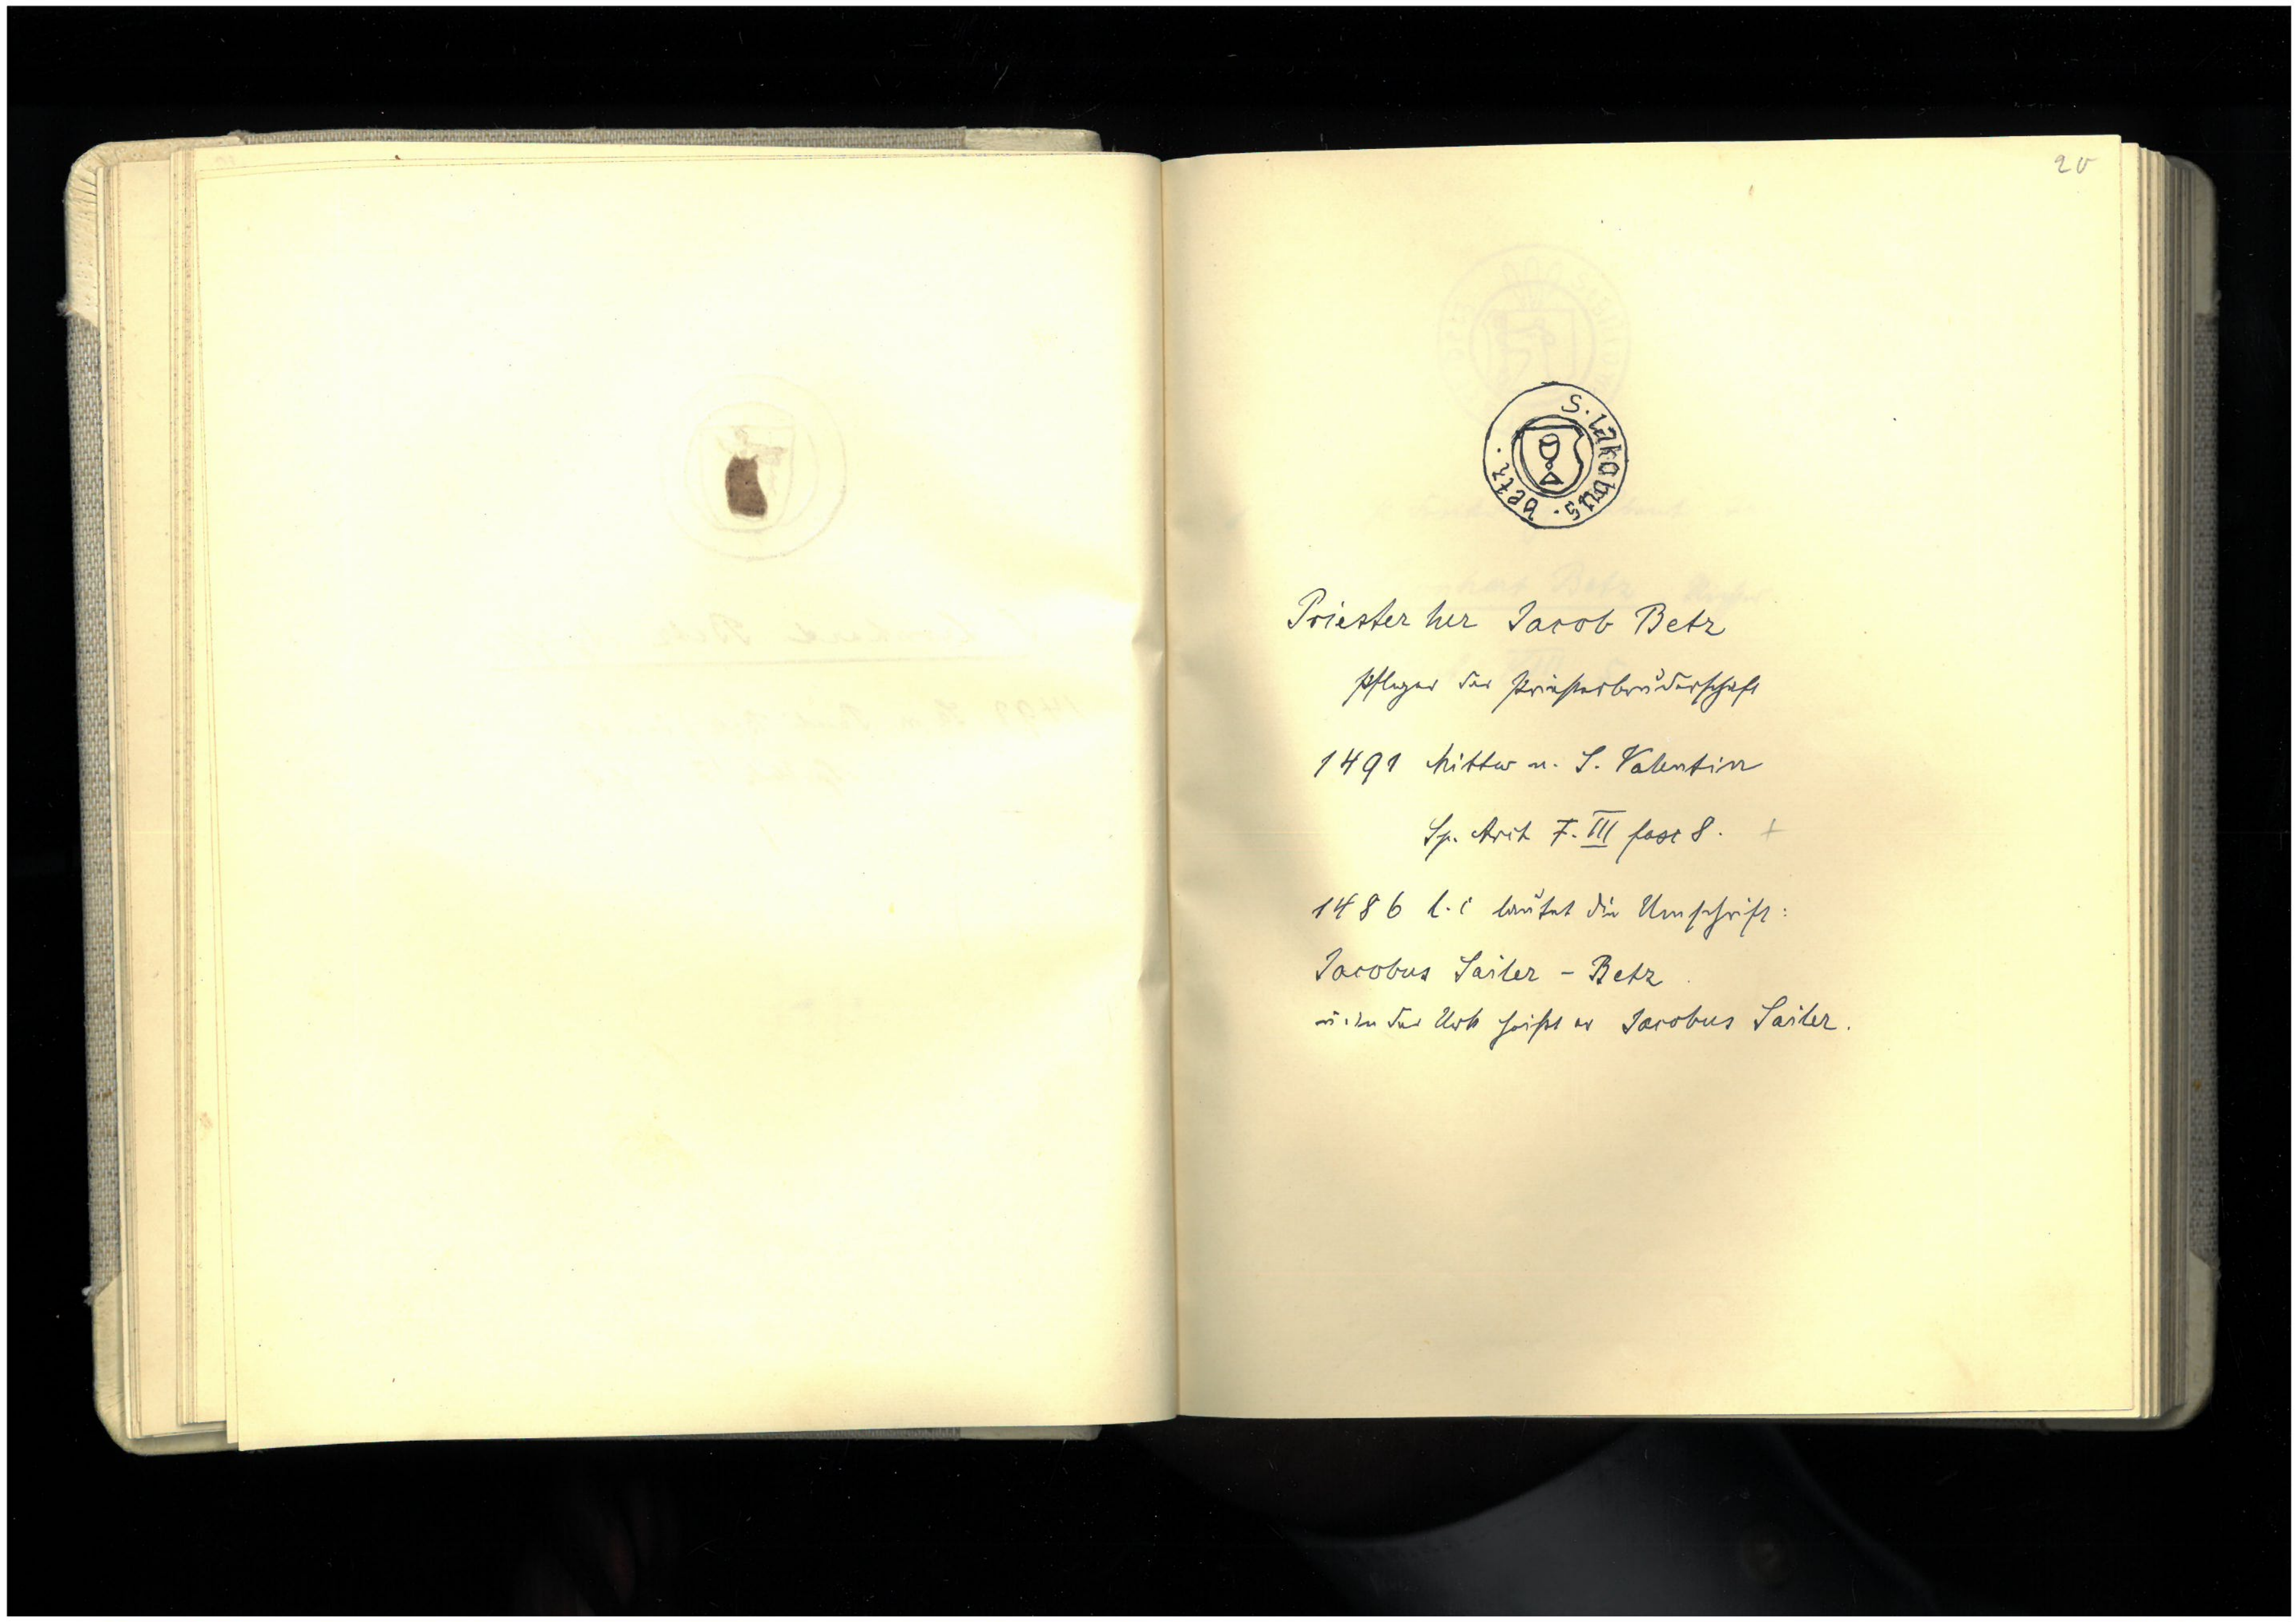 20
S. Iakobus. betz.
Priester her Jacob Betz
Pfleger der Priesterbrüderschaft
1491 Mittw n. S. Valentin
Sp. Arch F. III fasc 8. +
1486 l. c lautet die Umschrift:
Jacobus Sailer - Betz
u. in der Urk heißt er Jacobus Sailer.